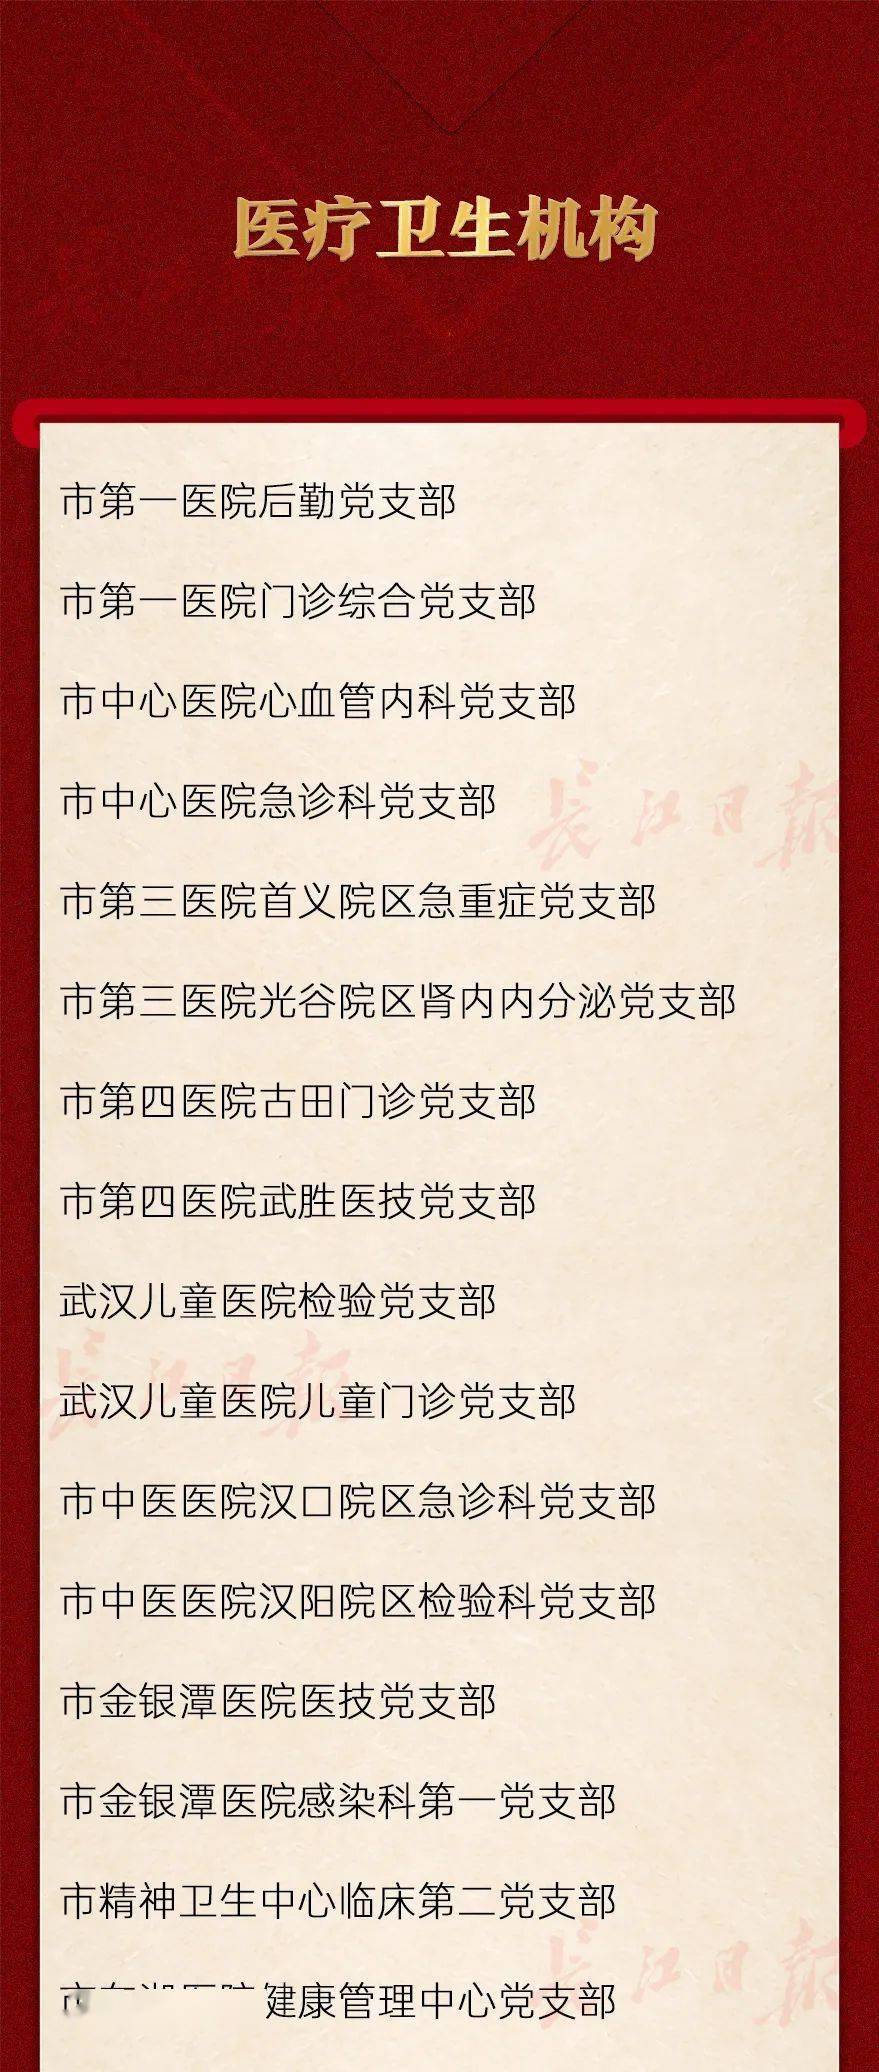 医疗卫生机构
市第一医院后勤党支部
市第一医院门诊综合党支部
市中心医院心血管内科党支部
市中心医院急诊科党支部
长江日报
市第三医院首义院区急重症党支部
市第三医院光谷院区肾内内分泌党支部
市第四医院古田门诊党支部
市第四医院武胜医技党支部
武汉儿童医院检验党支部
长江日报
武汉儿童医院儿童门诊党支部
市中医医院汉口院区急诊科党支部
市中医医院汉阳院区检验科党支部
市金银潭医院医技党支部
市金银潭医院感染科第一党支部
市精神卫生中心临床第二党支部
长江日报
健康管理中心党支部